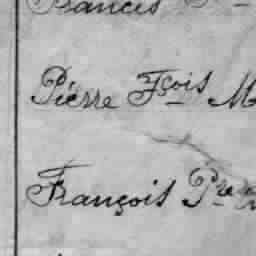 Francis
Pierre Fçois M
François Pre